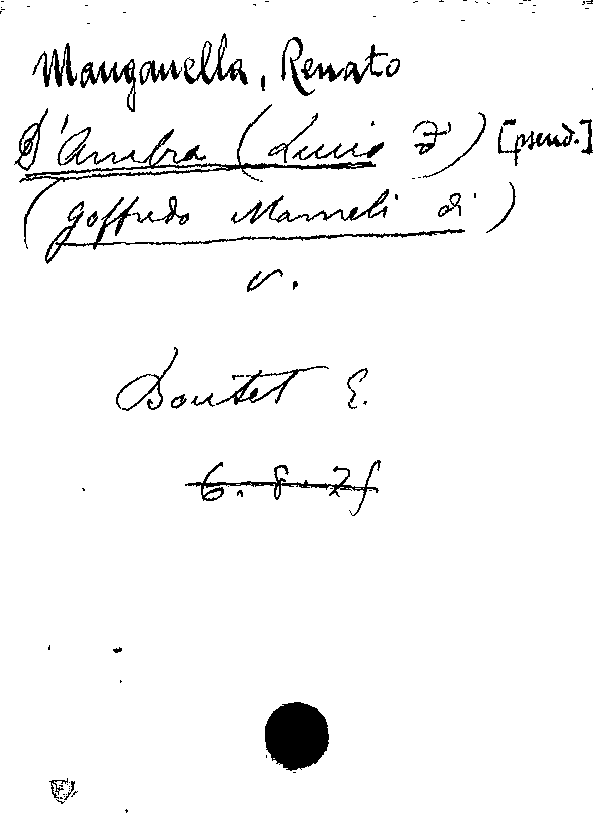 Manganella, Renato
D'Ambra (Lucio D') [pseud.]
(Goffredo Mameli di)
v.
Boutet E.
6. 8.